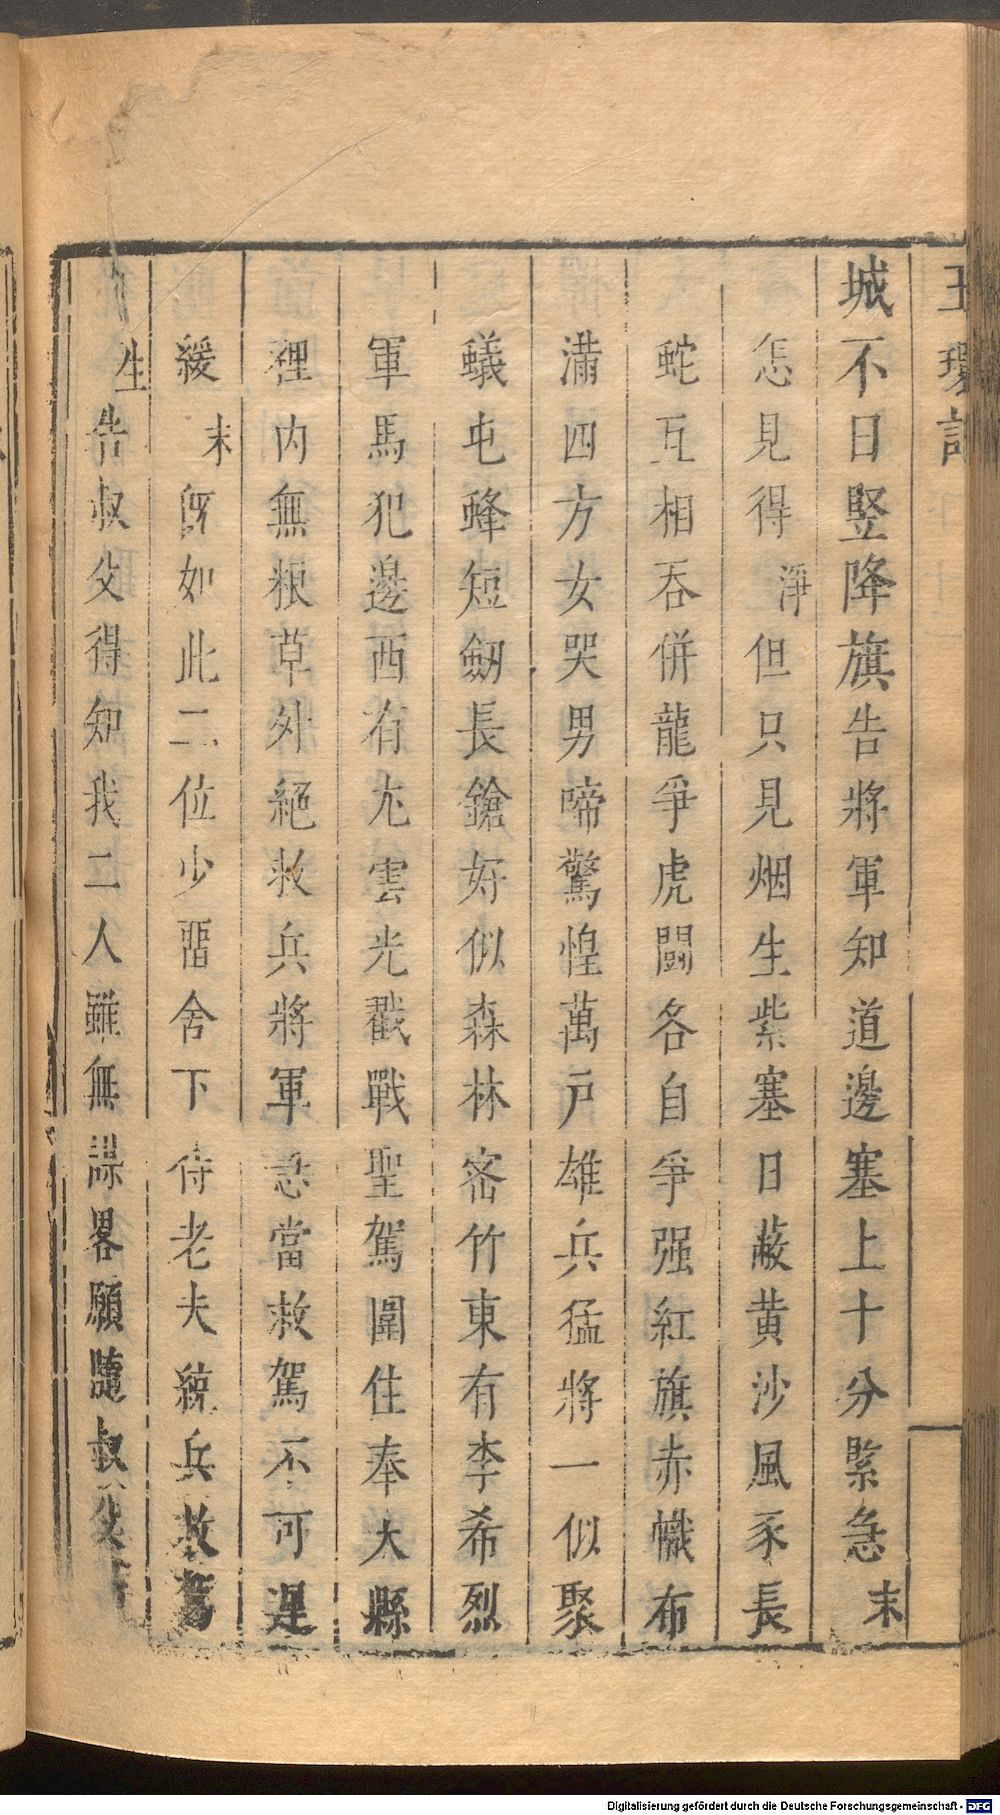 玉環記
城不日竪降旗告將軍知道邊塞上十分緊急末
怎見得淨但只見烟生紫塞日蔽黄沙風豕長
蛇互相吞併龍爭虎鬪各自爭强紅旗赤幟布
滿四方女哭男啼驚惶萬戸雄兵猛將一似聚
蟻屯蜂短劒長鎗好似森林密竹東有李希烈
軍馬犯邊西有尤雲光戳戰聖駕圍住奉大縣
裡内無粮草外絕救兵將軍忩當救駕不可遲
緩末旣如此二位少畱舍下待老夫統兵救駕
生告叔父得知我二人雖無謀畧願隨叔父
Digitalisierung gefördert durch die Deutsche Forschungsgemeinschaft - DFG